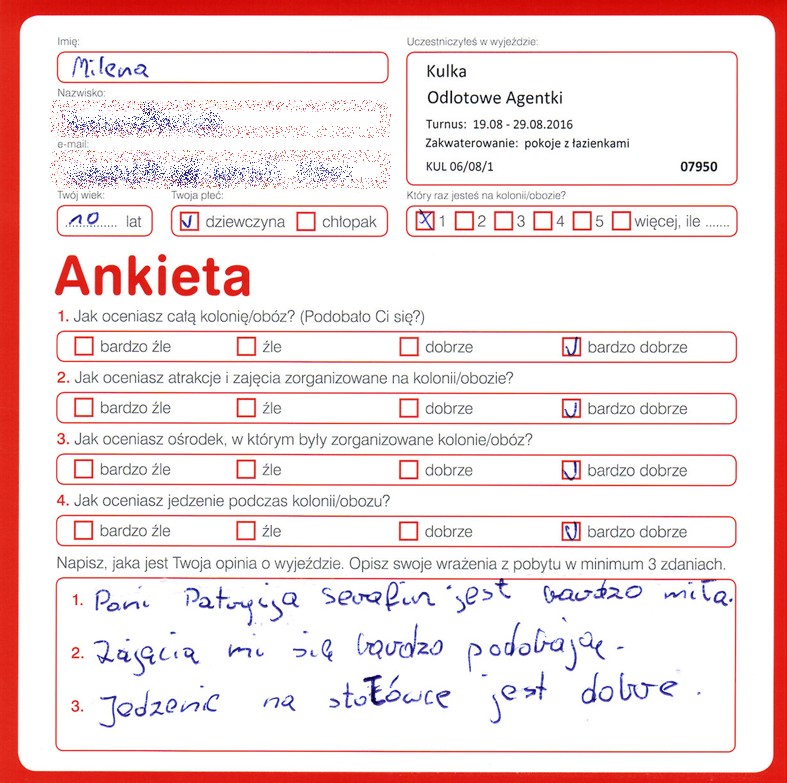 Imię:
Milena
Nazwisko:
e-mail:
Twój wiek:
10 lat
Twoja płeć:
dziewczyna chłopak
Uczestniczyłeś w wyjeździe:
Kulka
Odlotowe Agentki
Turnus: 19.08 - 29.08.2016
Zakwaterowanie: pokoje z łazienkami
KUL 06/08/1 07950
Który raz jesteś na kolonii/obozie?
1 2 3 4 5 więcej, ile .......
Ankieta
1. Jak oceniasz całą kolonię/obóz? (Podobało Ci się?)
bardzo źle źle dobrze bardzo dobrze
2. Jak oceniasz atrakcje i zajęcia zorganizowane na kolonii/obozie?
bardzo źle źle dobrze bardzo dobrze
3. Jak oceniasz ośrodek, w którym były zorganizowane kolonie/obóz?
bardzo źle źle dobrze bardzo dobrze
4. Jak oceniasz jedzenie podczas kolonii/obozu?
bardzo źle źle dobrze bardzo dobrze
Napisz, jaka jest Twoja opinia o wyjeździe. Opisz swoje wrażenia z pobytu w minimum 3 zdaniach.
1. Pani Patrycja serafin jest bardzo miła.
2. Zajęcia mi się bardzo podobają.
3. Jedzenie na stołówce jest dobre.